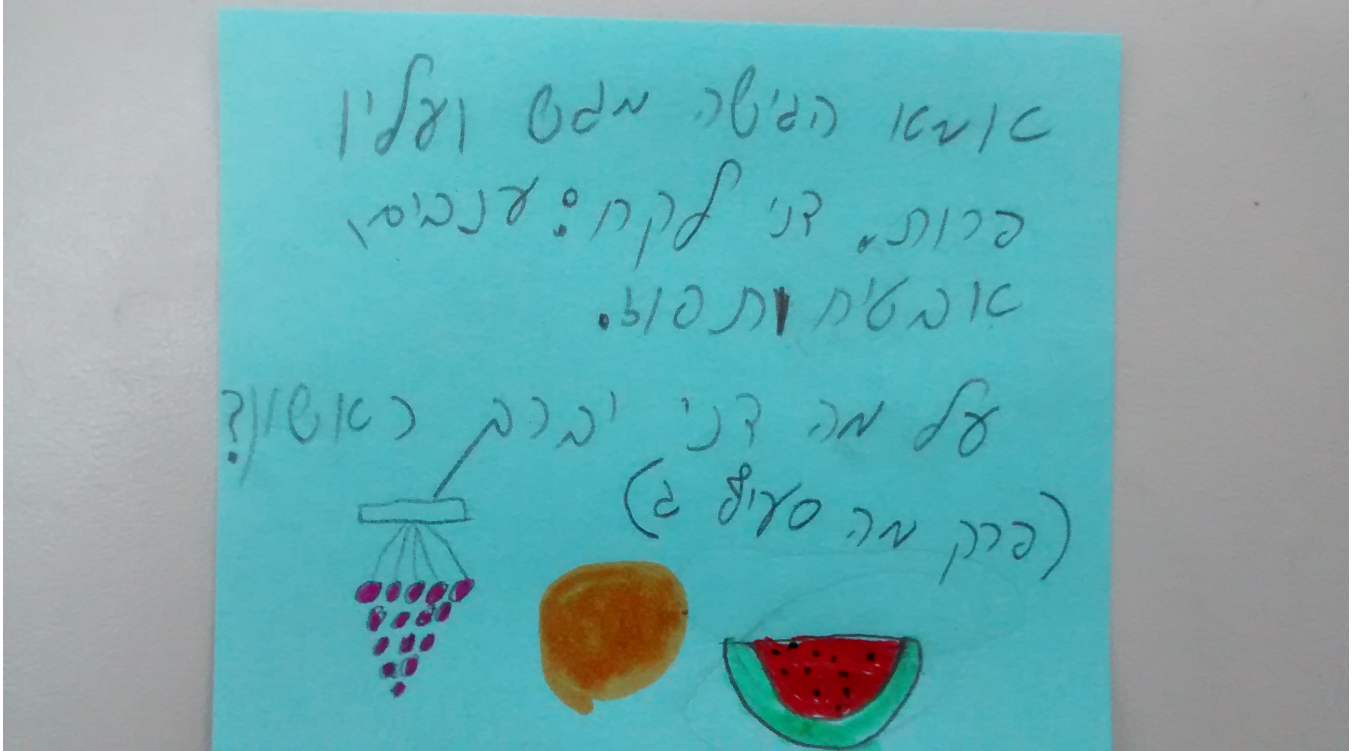 אמא הגישה מגש ועליו
פרות. דני לקח: ענבים,
אבטיח ותפוז.
על מה דני יברך ראשון?
(פרק מה סעיף ג)